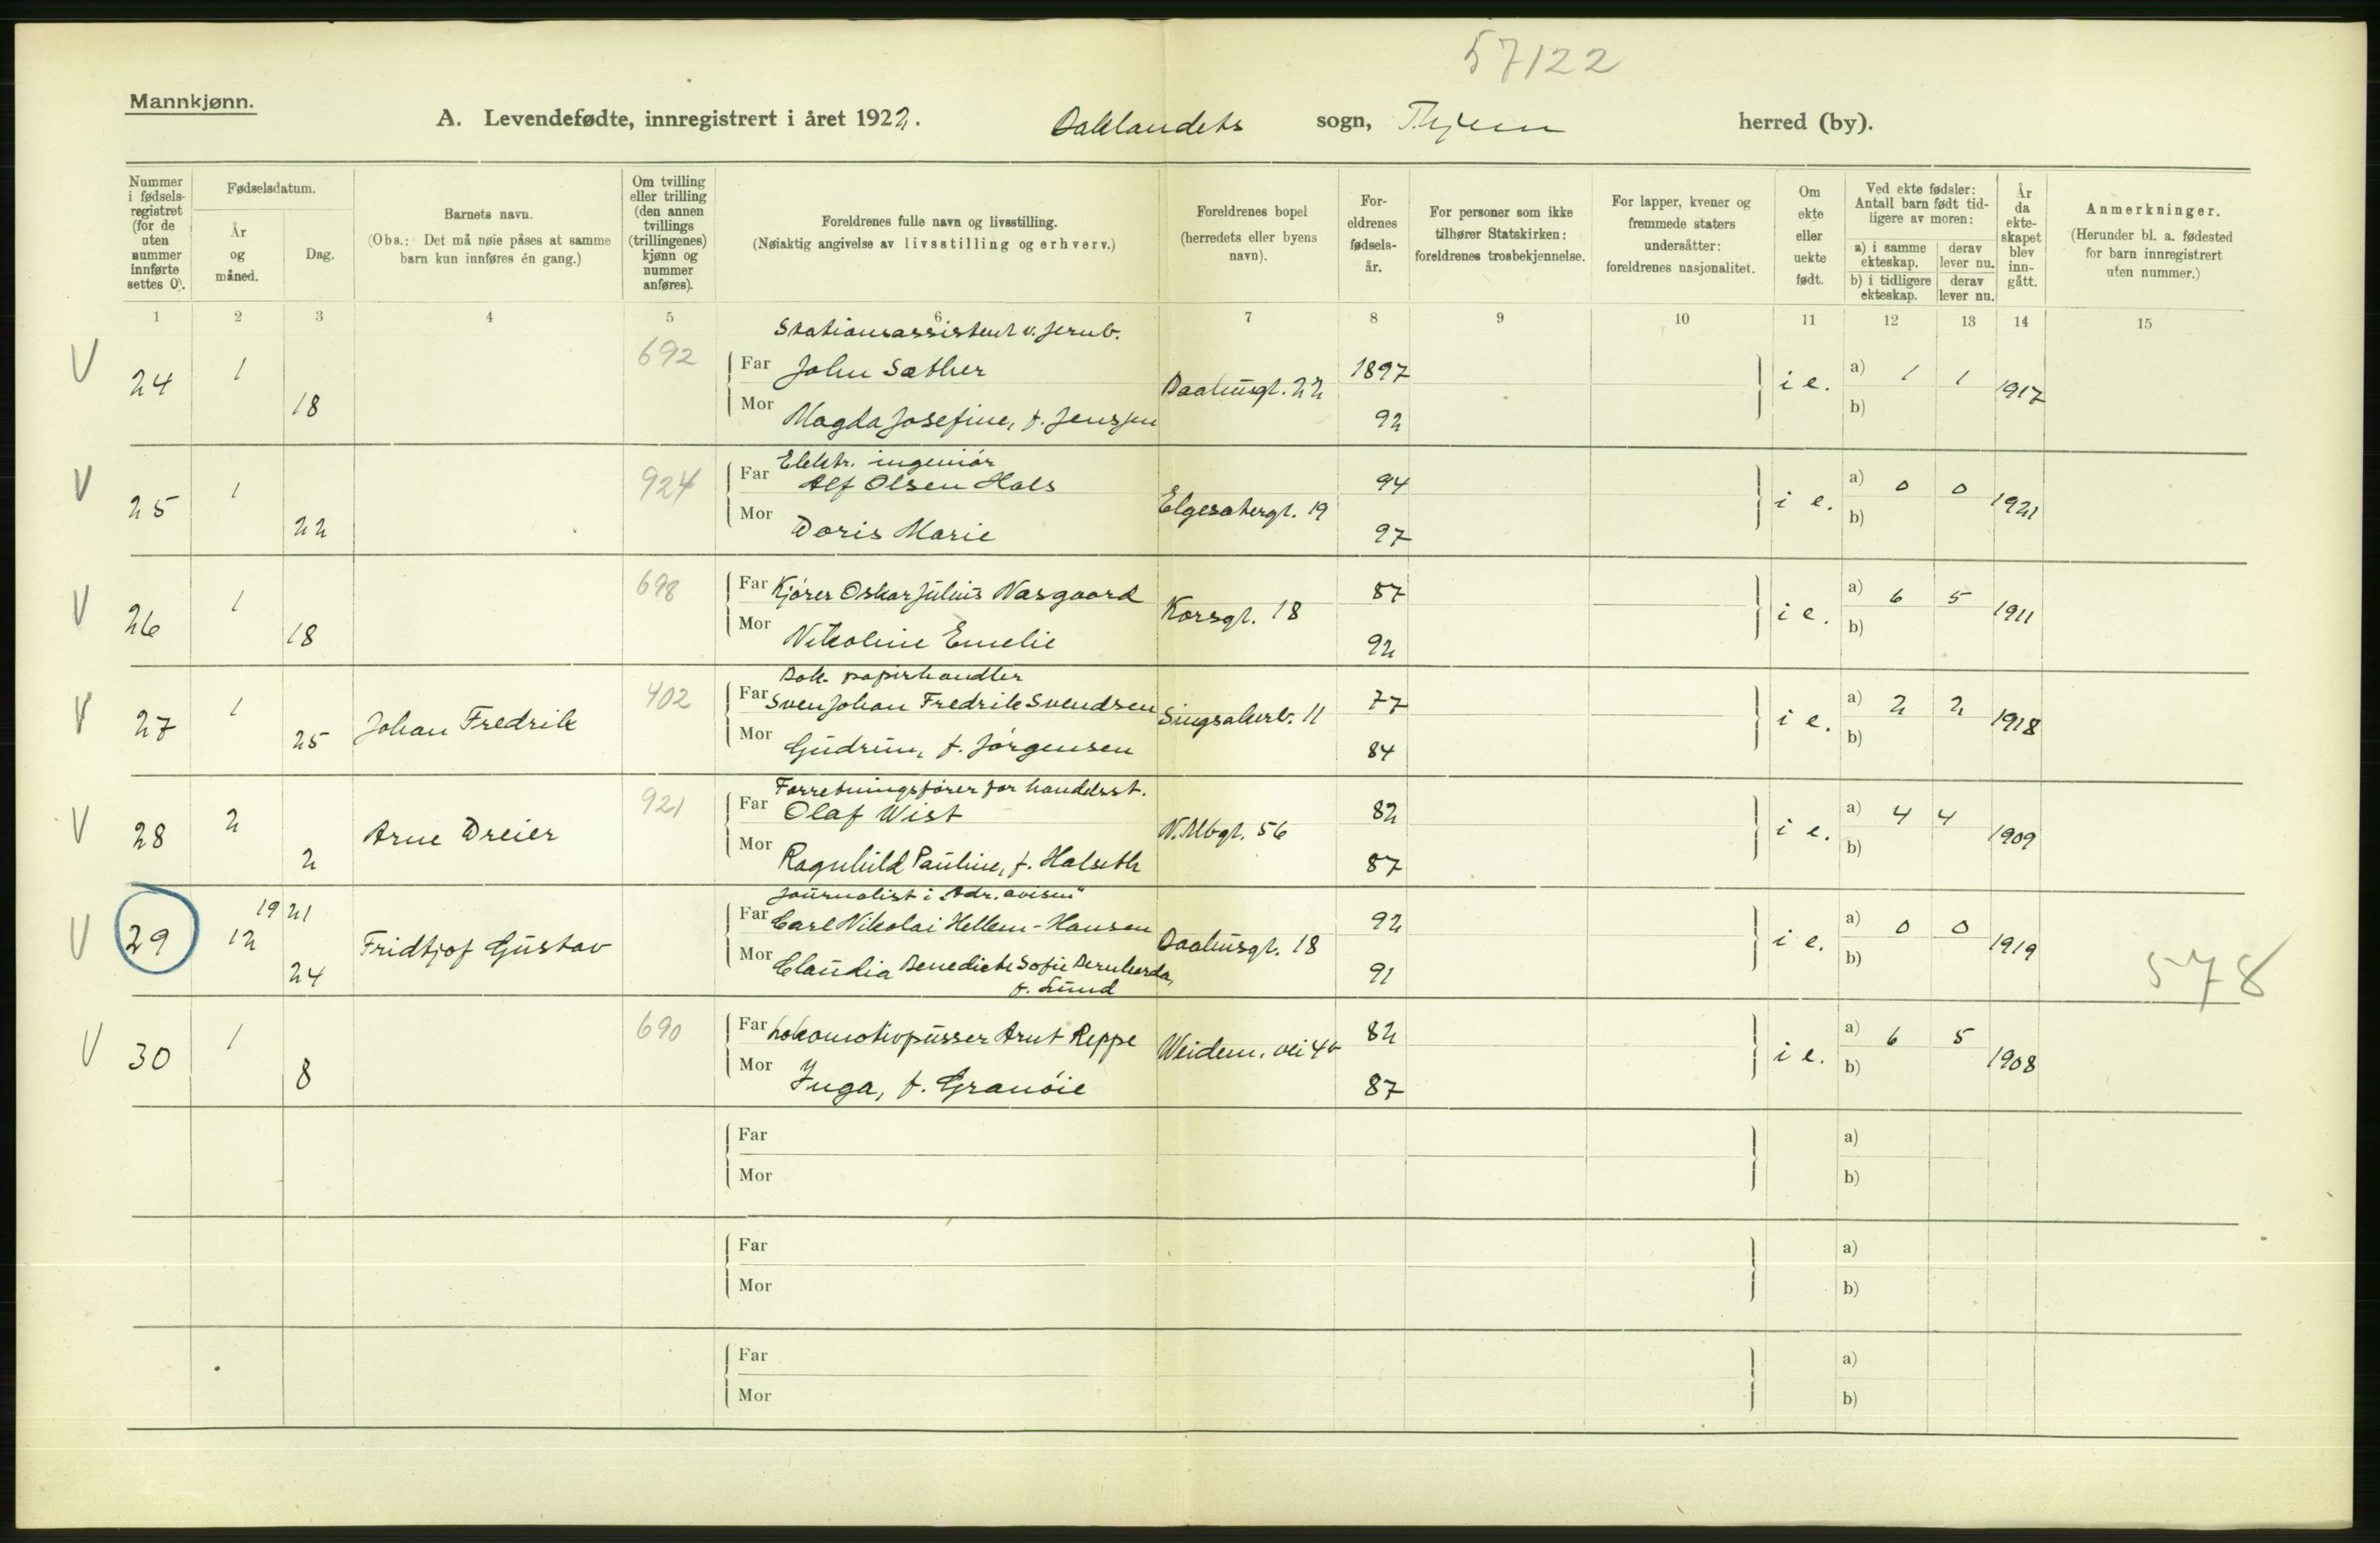 57122
Mannkjønn.
A. Levendefødte, innregistrert i året 1922. Baklandets sogn, Thjem herred (by).
Nummer i fødsels-registret (for de uten nummer innførte settes 0).
Fødselsdatum.
År og måned.
Dag.
Barnets navn.
(Obs.: Det må nøie påses at samme barn kun innføres én gang.)
Om tvilling eller trilling (den annen tvillings (trillingenes) kjønn og nummer anføres).
Foreldrenes fulle navn og livsstilling.
(Nøiaktig angivelse av livsstilling og erhverv.)
Foreldrenes bopel (herredets eller byens navn).
For-eldrenes fødsels-år.
For personer som ikke tilhører Statskirken: foreldrenes trosbekjennelse.
For lapper, kvener og fremmede staters undersåtter: foreldrenes nasjonalitet.
Om ekte eller uekte født.
Ved ekte fødsler: Antall barn født tid-ligere av moren:
a) i samme ekteskap. derav lever nu.
b) i tidligere ekteskap. derav lever nu.
År da ekte-skapet blev inn-gått.
Anmerkninger.
(Herunder bl. a. fødested for barn innregistrert uten nummer.)
1 2 3 4 5 6 7 8 9 10 11 12 13 14 15
Stationsassistent v. jernb.
V 24 1 18 692 Far John Sæther Baahusgt. 22 1897 i e. a) 1 1 1917
Mor Magda Josefine, f. Jenssen 92 b)
Elektr. ingeniør
V 25 1 22 924 Far Alf Olsen Hals Elgesetergt. 19 94 i e. a) 0 0 1921
Mor Doris Marie 97 b)
V 26 1 18 698 Far Kjører Oskar Julius Vasgaard Korsgt. 18 87 i e. a) 6 5 1911
Mor Nikoline Emelie 92 b)
Bok- papirhandler
V 27 1 25 Johan Fredrik 402 Far Sven Johan Fredrik Svendsen Singsakerb. 11 77 i e. a) 2 2 1918
Mor Gudrun, f. Jørgensen 84 b)
Forretningsfører for handelsst.
V 28 2 2 Arne Dreier 921 Far Olaf Wist N. Mbgt. 56 82 i e. a) 4 4 1909
Mor Ragnhild Pauline, f. Halseth 87 b)
Journalist i "Adr. avisen"
V 29 1921 12 24 Fridtjof Gustav Far Carl Nikolai Hellem-Hansen Baahusgt. 18 92 i e. a) 0 0 1919 578
Mor Claudia Benedicte Sofie Bernharda, 91 b)
f. Lund
V 30 1 8 690 Far Lokomotivpusser Arnt Reppe Weidem. vei 4b 82 i e. a) 6 5 1908
Mor Inga, f. Granøie 87 b)
Far a)
Mor b)
Far a)
Mor b)
Far a)
Mor b)